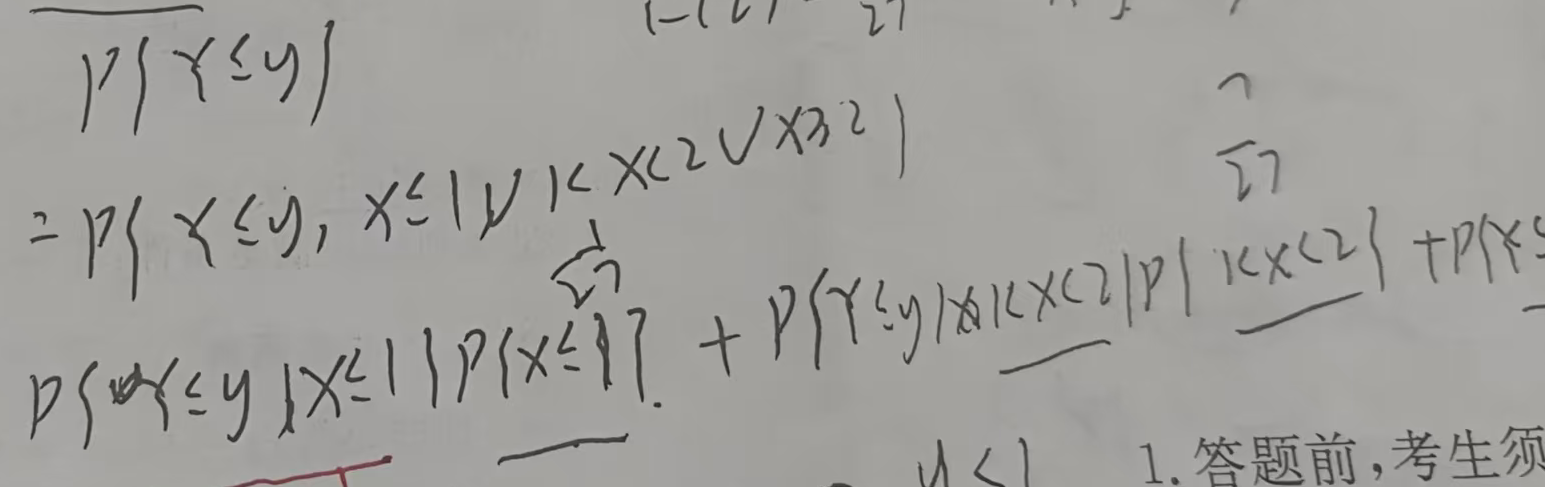 P{Y≤y}
=P{Y≤y, X≤1∪1<X<2∪X≥2}
1/27
7/27
P{Y≤y|X≤1}P{X≤1} + P{Y≤y|1<X<2}P{1<X<2} +P{Y≤
y<1
1. 答题前,考生须